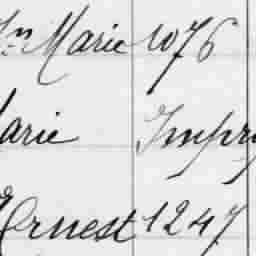 Marie 1076
Marie
Ernest 1247